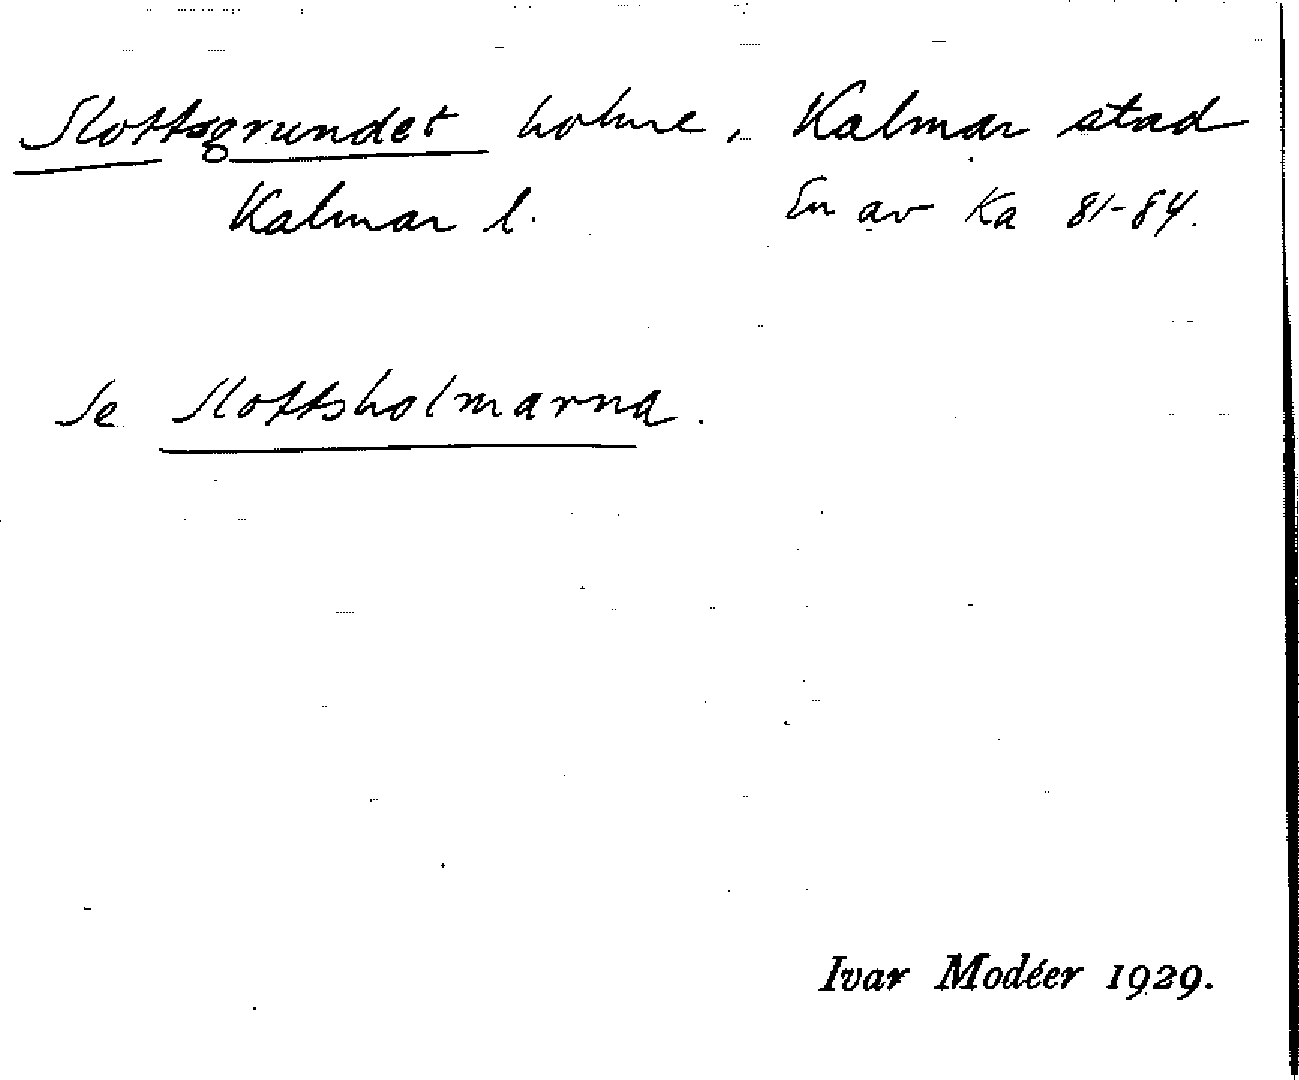 Slottsgrundet holme, Kalmar stad
Kalmar l. En av Ka 81-84.
Se Slottsholmarna.
Ivar Modéer 1929.